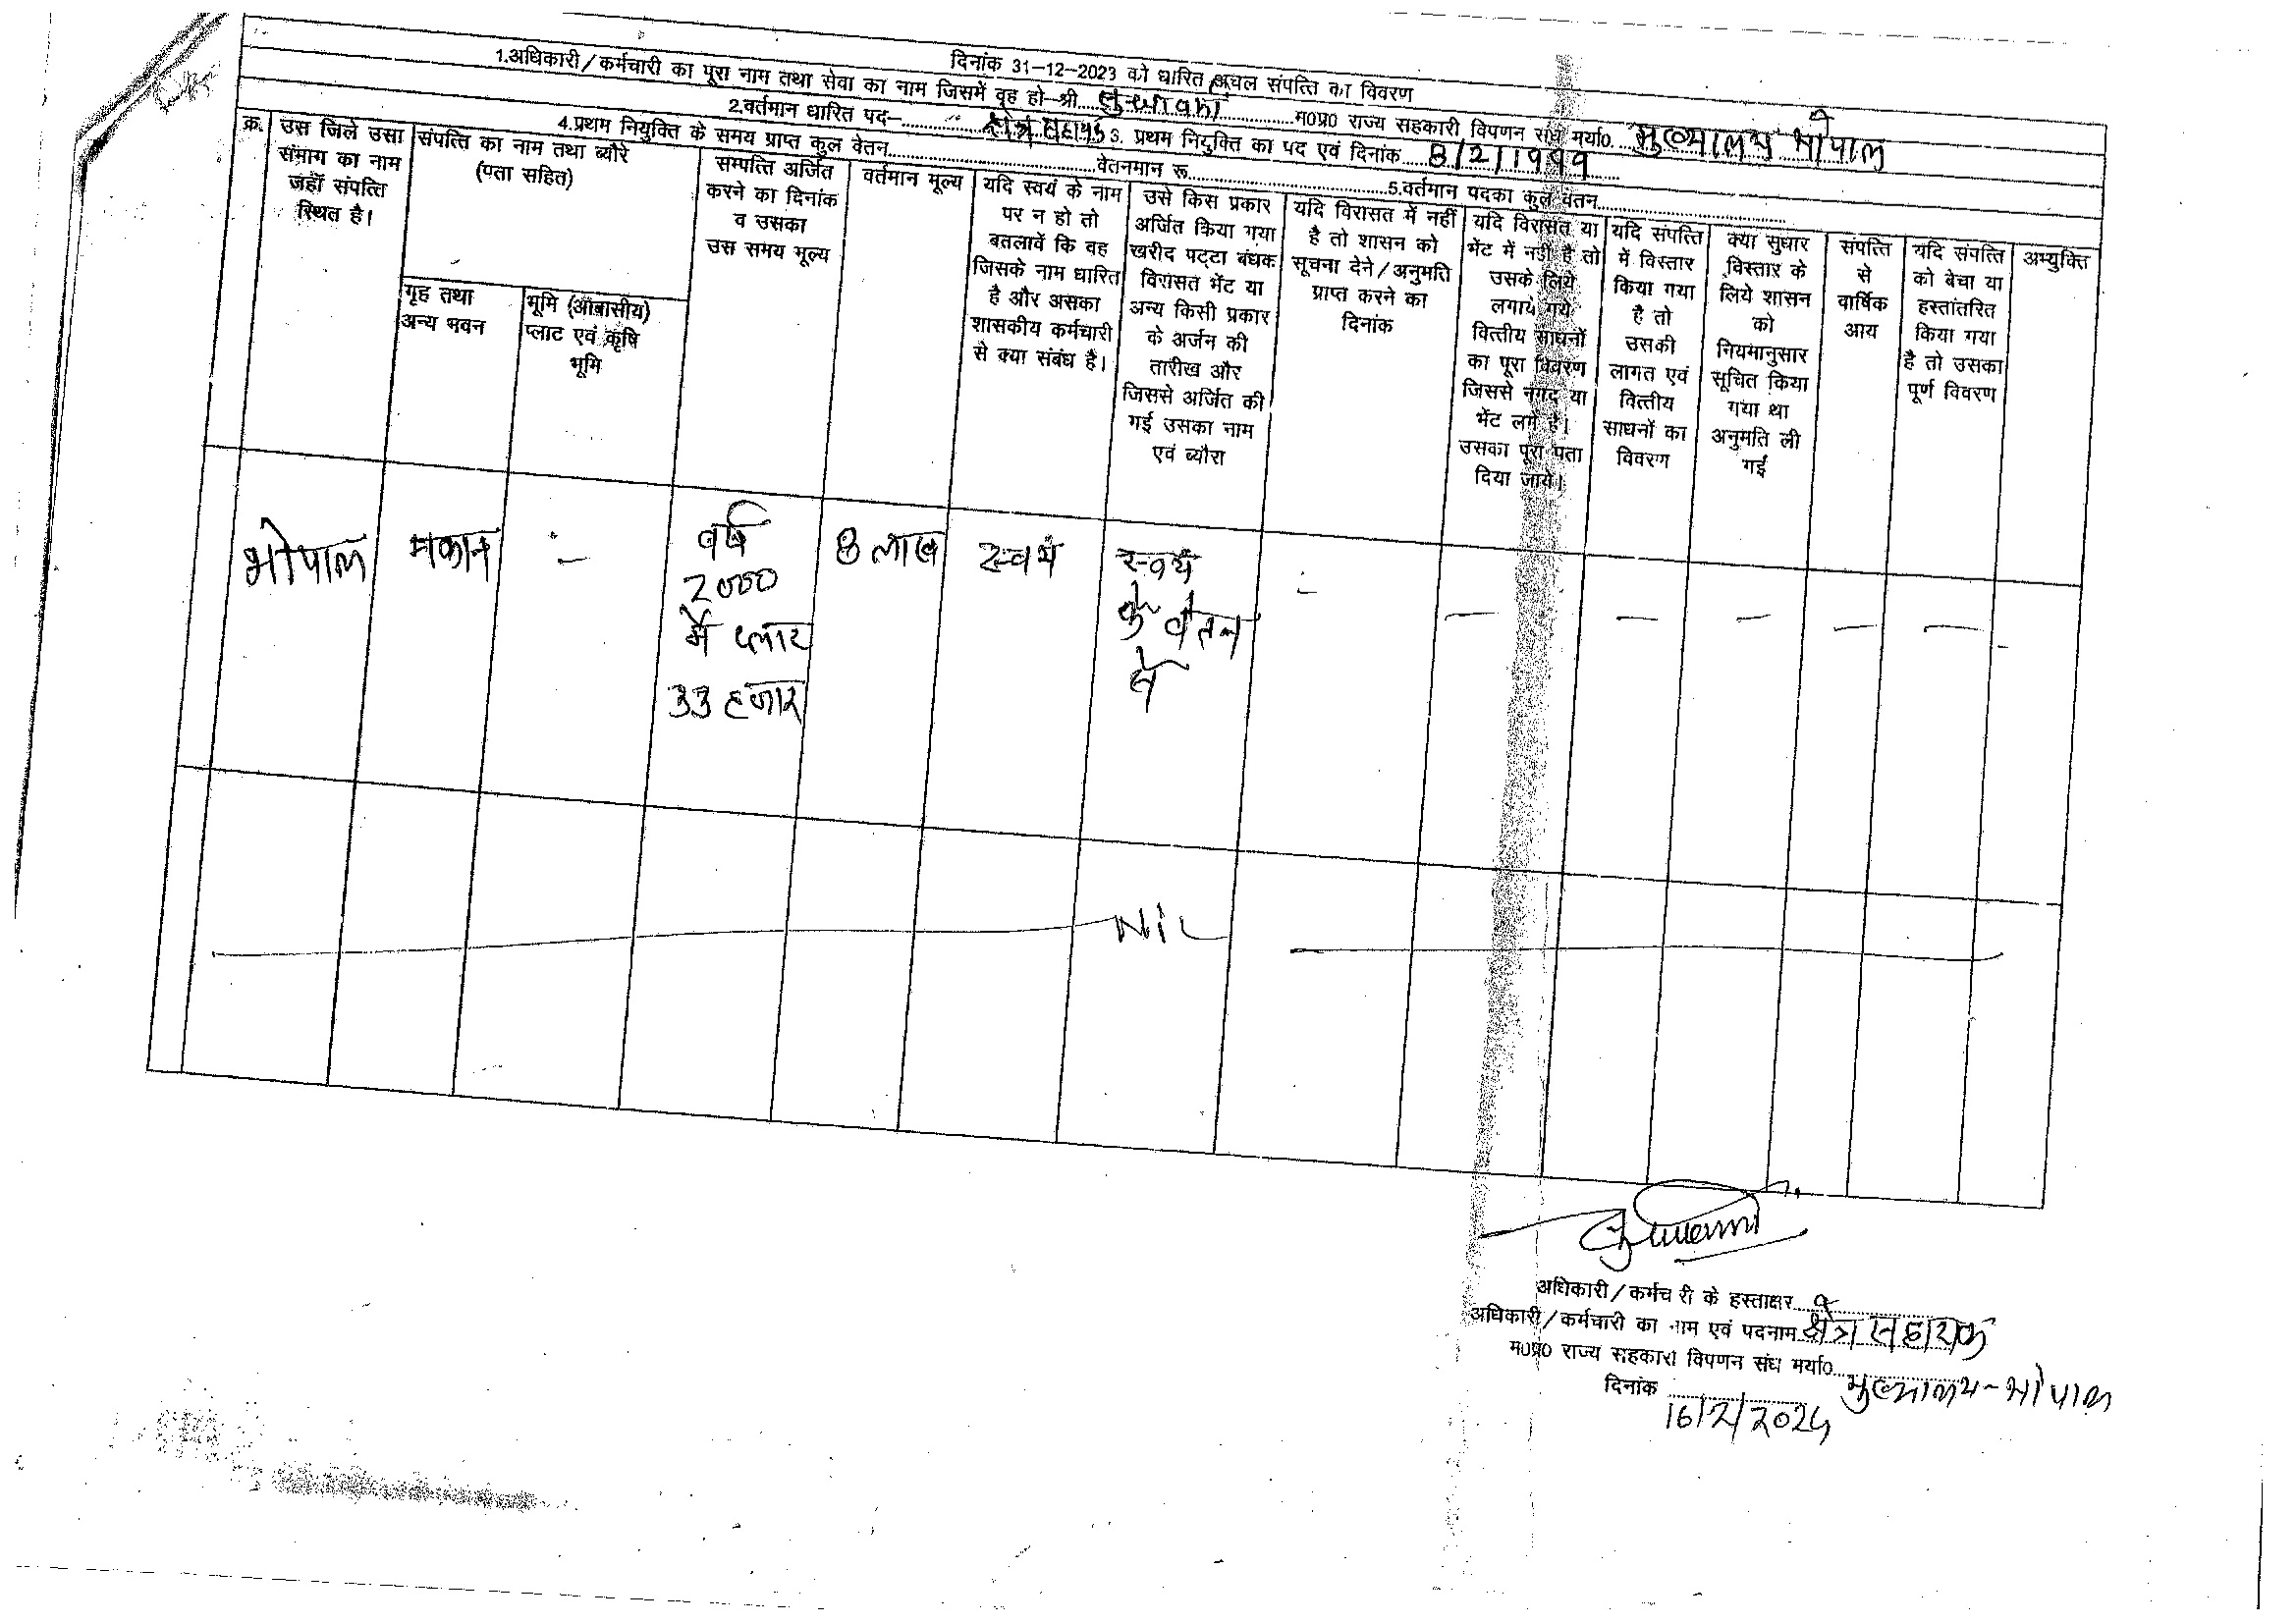 दिनांक 31-12-2023 को धारित अचल संपत्ति का विवरण
1.अधिकारी/कर्मचारी का पूरा नाम तथा सेवा का नाम जिसमें वह हो-श्री.................म0प्र0 राज्य सहकारी विपणन संघ मर्या0. मुख्यालय भोपाल
2.वर्तमान धारित पद-............क्षेत्र सहायक 3. प्रथम नियुक्ति का पद एवं दिनांक....8/2/1999
4.प्रथम नियुक्ति के समय प्राप्त कुल वेतन...............वेतनमान रू...............5.वर्तमान पदका कुल वेतन...............
क्र.
उस जिले उसा संभाग का नाम जहाँ संपत्ति स्थित है।
संपत्ति का नाम तथा ब्यौरे (पता सहित)
गृह तथा अन्य भवन
भूमि (आवासीय) प्लाट एवं कृषि भूमि
सम्पत्ति अर्जित करने का दिनांक व उसका उस समय मूल्य
वर्तमान मूल्य
यदि स्वयं के नाम पर न हो तो बतलावें कि वह जिसके नाम धारित है और असका शासकीय कर्मचारी से क्या संबंध है।
उसे किस प्रकार अर्जित किया गया खरीद पट्टा बंधक विरासत भेंट या अन्य किसी प्रकार के अर्जन की तारीख और जिससे अर्जित की गई उसका नाम एवं ब्यौरा
यदि विरासत में नहीं है तो शासन को सूचना देने/अनुमति प्राप्त करने का दिनांक
यदि विरासत या भेंट में नहीं है तो उसके लिये लगाये गये वित्तीय साधनों का पूरा विवरण जिससे नगद या भेंट लगे है। उसका पूरा पता दिया जाये।
यदि संपत्ति में विस्तार किया गया है तो उसकी लागत एवं वित्तीय साधनों का विवरण
क्या सुधार विस्तार के लिये शासन को नियमानुसार सूचित किया गया था अनुमति ली गई
संपत्ति से वार्षिक आय
यदि संपत्ति को बेचा या हस्तांतरित किया गया है तो उसका पूर्ण विवरण
अभ्युक्ति
भोपाल
मकान
-
वर्ष 2000 में प्लाट 33 हजार
8 लाख
स्वयं
स्वयं के वेतन से
-
-
-
-
-
-
-
Nil
अधिकारी/कर्मचारी के हस्ताक्षर..............
अधिकारी/कर्मचारी का नाम एवं पदनाम क्षेत्र सहायक
म0प्र0 राज्य सहकारी विपणन संघ मर्या0..............मुख्यालय-भोपाल
दिनांक ..............
16/2/2024